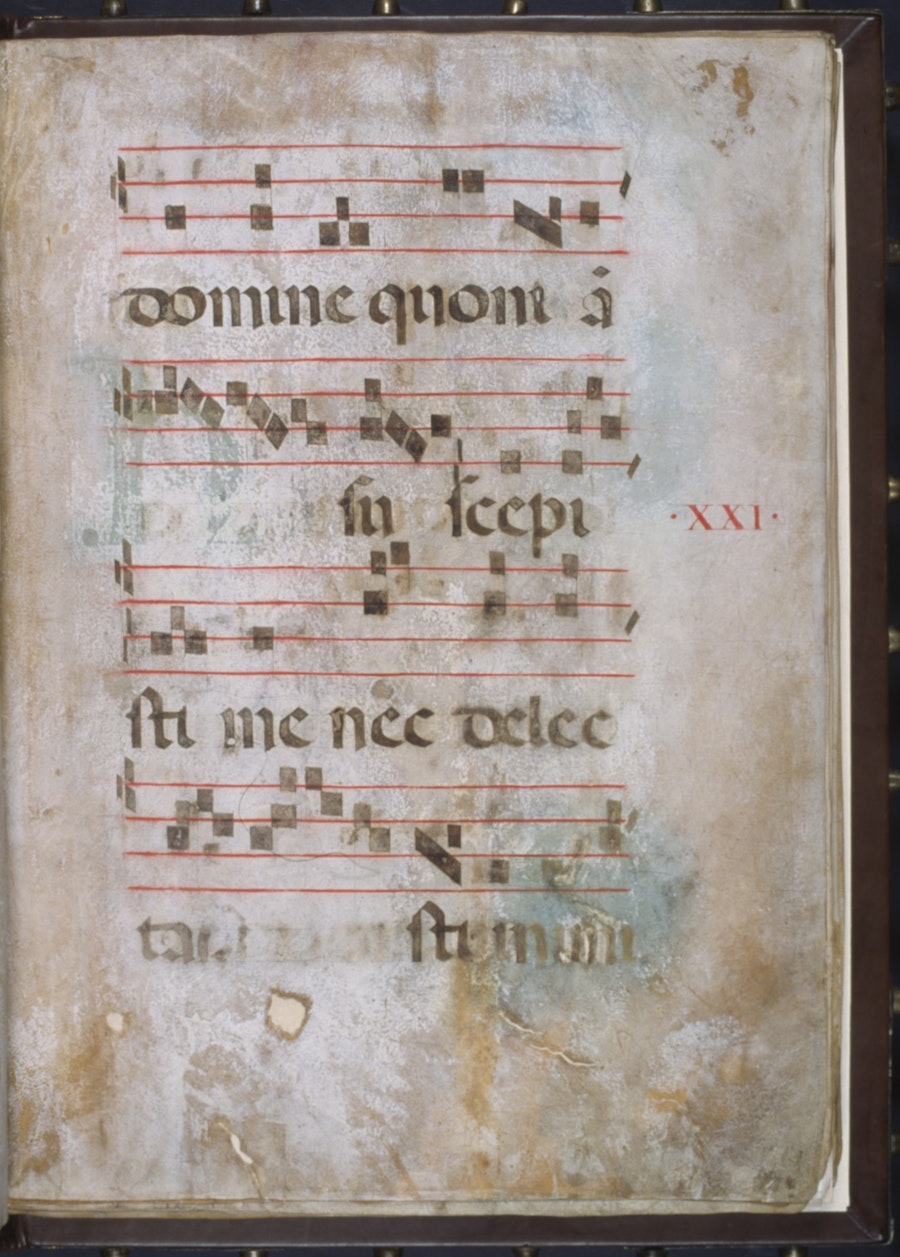 domine quoniā
su scepi
·XXI·
sti me nec delec
tasti inimi